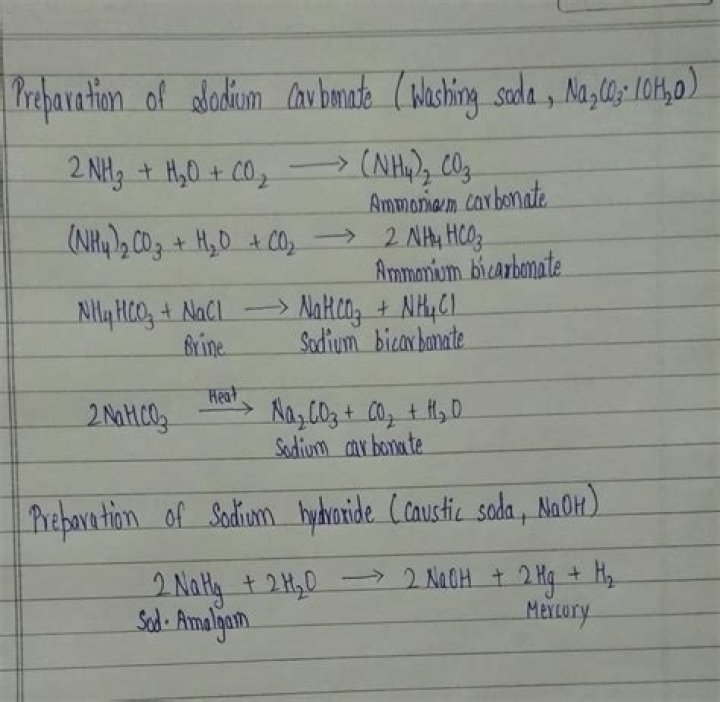 Preparation of Sodium Carbonate (Washing soda, Na₂CO₃·10H₂O)
2NH₃ + H₂O + CO₂ ⟶ (NH₄)₂CO₃
Ammonium carbonate
(NH₄)₂CO₃ + H₂O + CO₂ ⟶ 2 NH₄HCO₃
Ammonium bicarbonate
NH₄HCO₃ + NaCl ⟶ NaHCO₃ + NH₄Cl
Brine Sodium bicarbonate
Heat
2NaHCO₃ ⟶ Na₂CO₃ + CO₂ + H₂O
Sodium carbonate
Preparation of Sodium hydroxide (Caustic soda, NaOH)
2 NaHg + 2H₂O ⟶ 2 NaOH + 2Hg + H₂
Sod. Amalgam Mercury